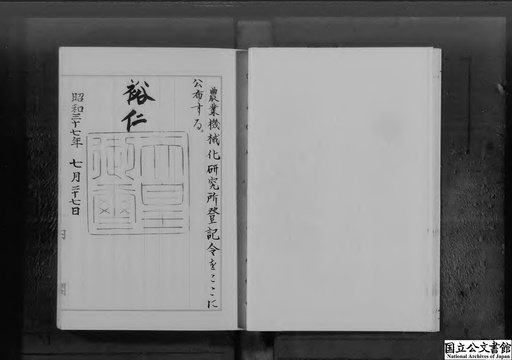 農業機械化研究所登記令をここに
公布する。
裕仁
天皇
御璽
昭和三十七年 七月二十七日
国立公文書館
National Archives of Japan